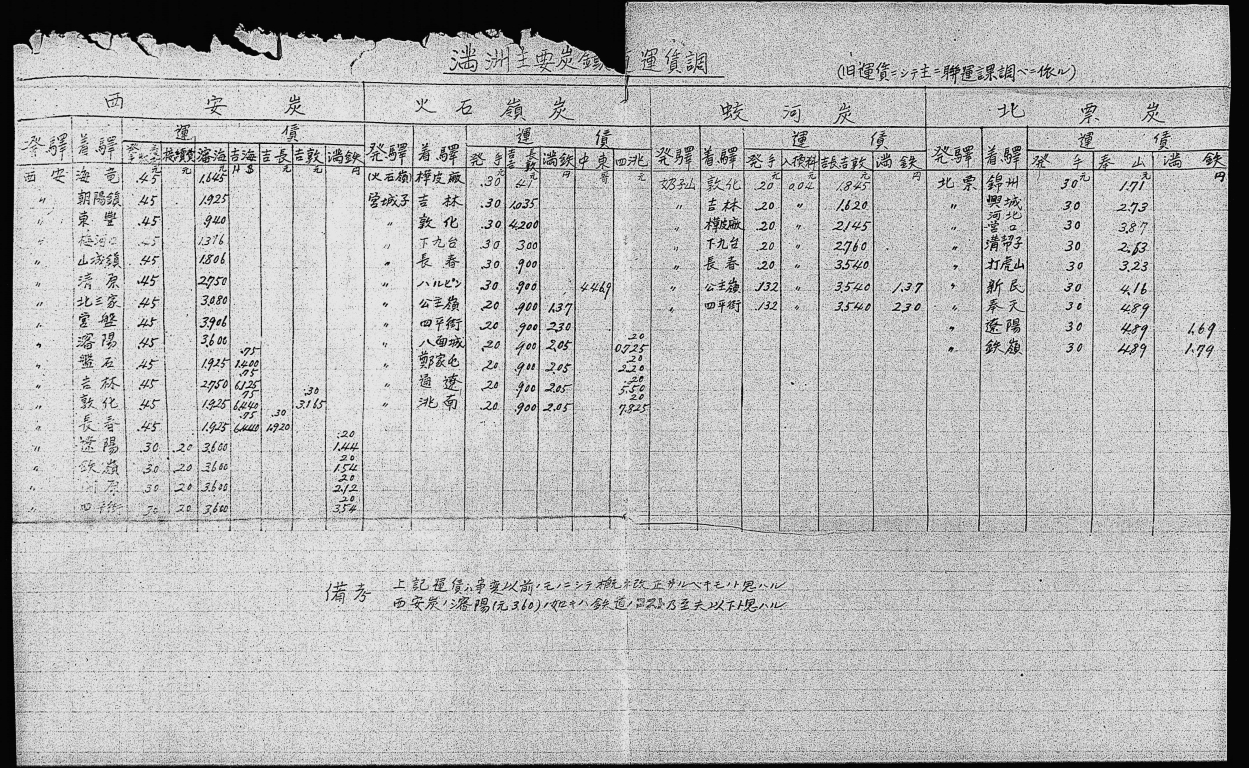 満洲主要炭鉄道運賃調
(旧運賃ニシテ主ニ聯運課調ベニ依ル)
西安炭 火石嶺炭 蛟河炭 北票炭
運賃 運賃 運賃 運賃
発驛 着驛 瀋海 吉海 吉長 吉敦 満鉄 発驛 着驛 発手 満鉄 中東 四洮 発驛 着驛 発手 吉長吉敦 満鉄 発驛 着驛 発手 奉山 満鉄
西安 海竜 .45 1.645
〃 朝陽鎮 .45 1.925
〃 東豊 .45 .940
〃 梅河口 .45 1.376
〃 山城鎮 .45 1.806
〃 清原 .45 2.750
〃 北三家 .45 3.080
〃 営盤 .45 3.906
〃 瀋陽 .45 3.600
〃 盤石 .45 1.925 .75 1.400
〃 吉林 .45 2.750 .75 6.125
〃 敦化 .45 1.925 .75 6.440 .30 3.165
〃 長春 .45 1.925 .75 6.440 .30 1.920
〃 遼陽 .30 .20 3.600 .20 1.44
〃 鉄嶺 .30 .20 3.600 .20 1.54
〃 開原 .30 .20 3.600 .20 2.12
〃 四平街 .30 .20 3.600 .20 3.54
(火石嶺) 樺皮廠 .30 .41
営城子 吉林 .30 1.035
〃 敦化 .30 4.200
〃 下九台 .30 .300
〃 長春 .30 .900
〃 ハルピン .30 .900 4.469
〃 公主嶺 .20 .900 1.37
〃 四平街 .20 .900 2.30
〃 八面城 .20 .900 2.05 .20 0.725
〃 鄭家屯 .20 .900 2.05 .20 2.20
〃 通遼 .20 .900 2.05 .20 5.50
〃 洮南 .20 .900 2.05 .20 7.825
奶子山 敦化 .20 0.04 1.845
〃 吉林 .20 〃 1.620
〃 樺皮廠 .20 〃 2.145
〃 下九台 .20 〃 2.760
〃 長春 .20 〃 3.540
〃 公主嶺 .132 〃 3.540 1.37
〃 四平街 .132 〃 3.540 2.30
北票 錦州 30 1.71
〃 興城 30 2.73
〃 河北営口 30 3.87
〃 溝帮子 30 2.63
〃 打虎山 30 3.23
〃 新民 30 4.16
〃 奉天 30 4.89
〃 遼陽 30 4.89 1.69
〃 鉄嶺 30 4.89 1.79
備考 上記運賃ハ事変以前ノモノニシテ概ネ改正サルベキモノト思ハル
西安炭ノ瀋陽(元3.60)ノ如キハ鉄道ノ 乃至夫以下ト思ハル